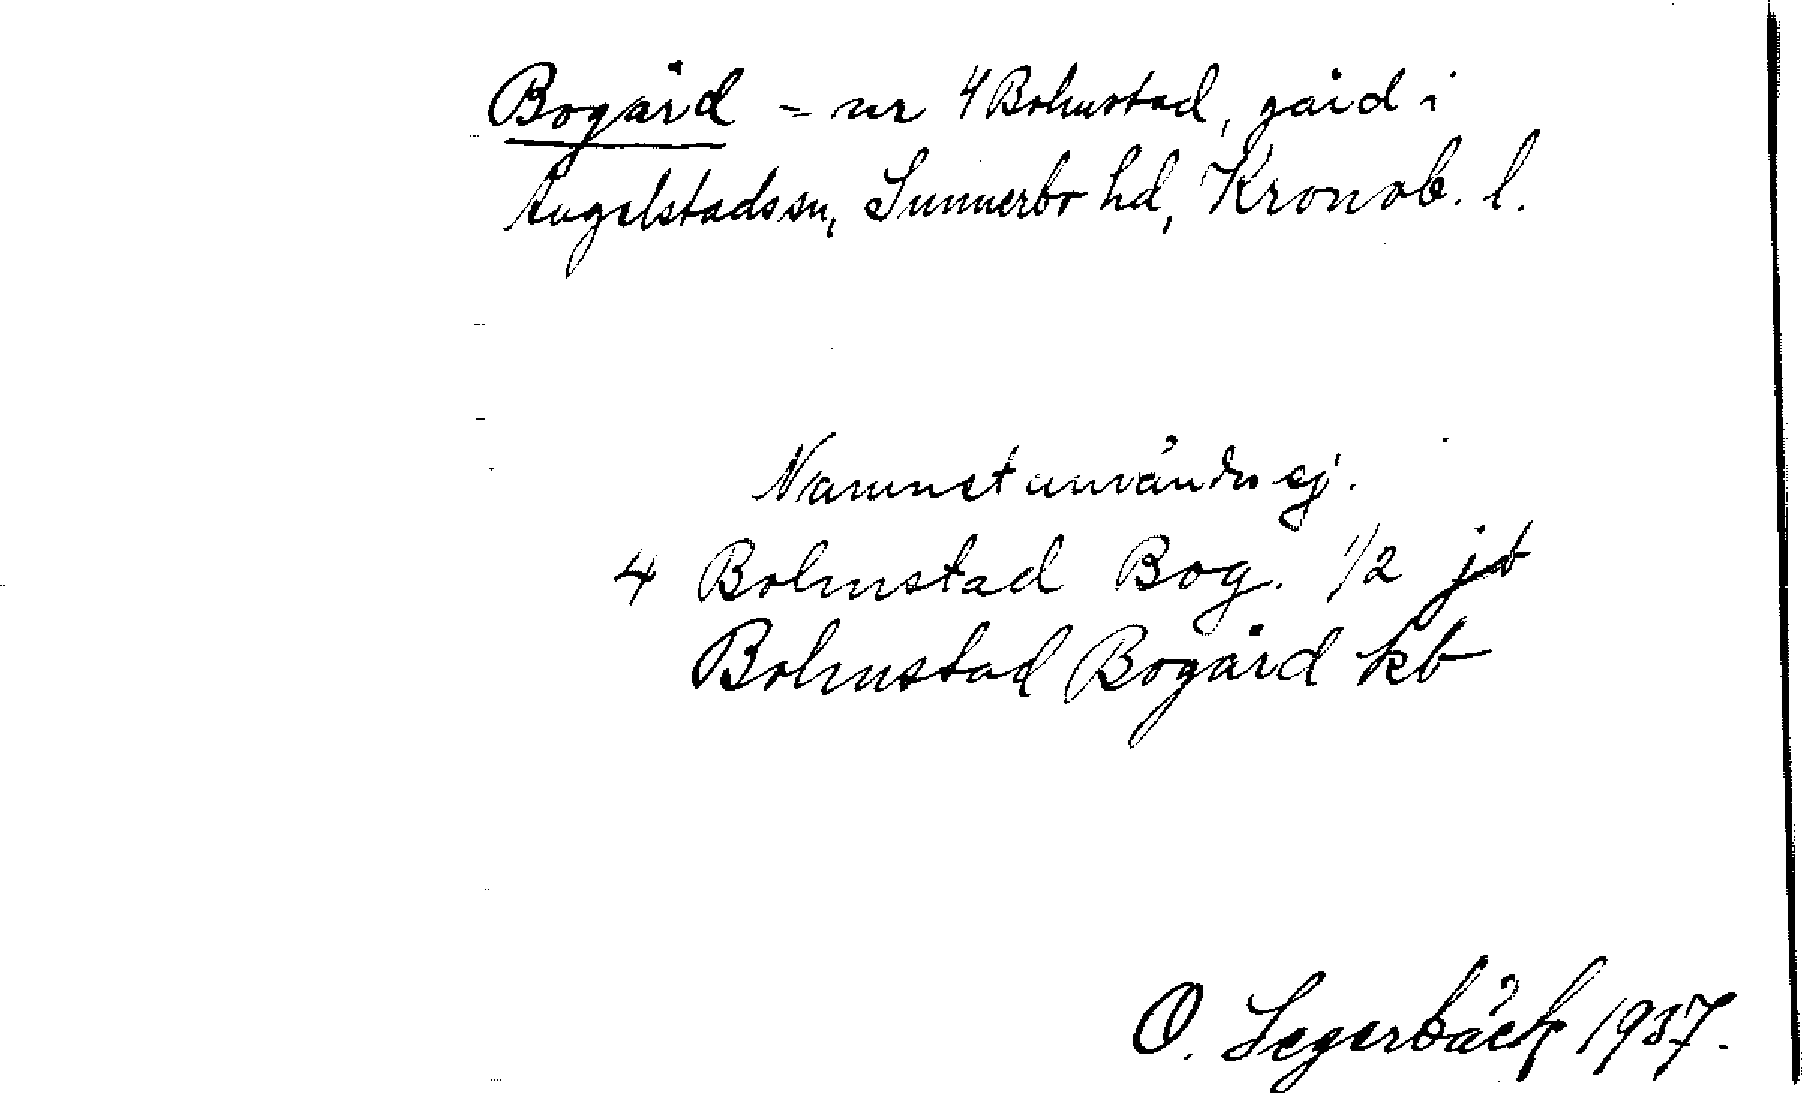 Bogård = nr 4 Bolmstad, gård i
Angelstads sn, Sunnerbo hd, Kronob. l.
Namnet användes ej.
4 Bolmstad Bog. 1/2 jb
Bolmstad Bogård kb
O. Segerbäck 1937.